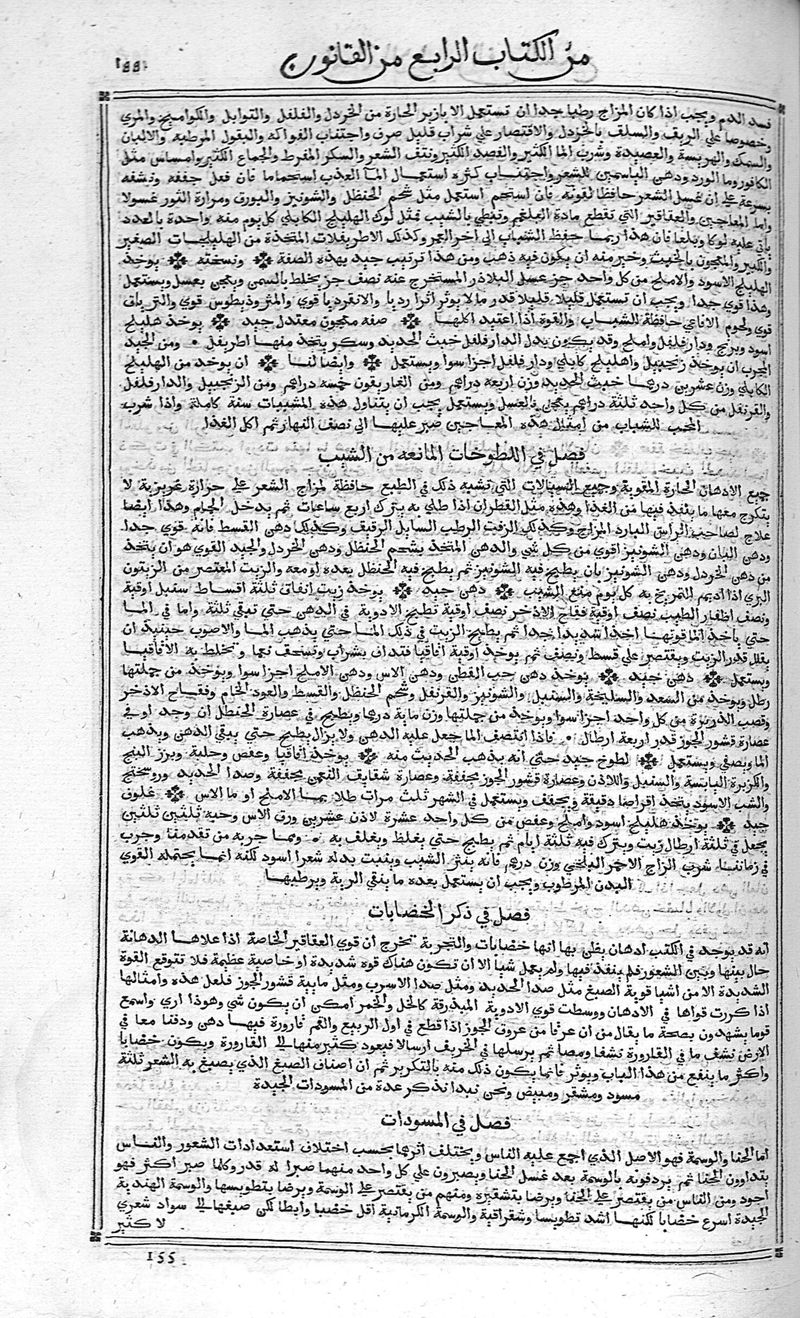 من الكتاب الرابع من القانون
فسد الدم ويجب اذا كان المزاج رطبا جدا ان تستعمل الابازير الحارة من الخردل والفلفل والتوابل والكواميخ والمري
وخصوصا علي الريف والسلف بالخردل والاقتصار علي شراب قليل صرف واجتناب الفواكه والبقول المرطبه والالبان
والسمك والهريسة والعصيدة وشرب الما الكثير والفصد الكثير ونتف الشعر والسكر المفرط والجماع الكثير وامساس مثل
الكافور وما الورد ودهن الياسمين للشعر واجتناب كثره استعمال الما العذب استحماما فان فعل جففه ونشفه
بسرعة علي ان غسل الشعر حافظا لقوته فان استحم استعمل مثل شحم الحنظل والشونيز والبورق ومرارة الثور غسولا
واما المعاجين والعقاقير التي تقطع مادة البلغم وتبطي بالشيب فمثل لوك الهليلج الكابلي كل يوم منه واحدة بالعدد
ياتي عليه لوكا وبلغا فان هذا ربما حفظ الشباب الي اخر العمر وكذلك الاطريفلات المتخذة من الهليلجات الصغير
والكبير والمعجون بالخبث وخير منه ان يكون فيه ذهب ومن هذا ترتيب جيد بهذه الصفة ونسخته يوخذ
الهليلج الاسود والاملج من كل واحد جز عسل البلاذر المستخرج عنه نصف جز يخلط بالسمن ويعجن بعسل ويستعمل
وهذا قوي جدا ويجب ان تستعمل قليلا قليلا قدر ما لا يوثر اثرا رديا والانقرديا قوي والمثروذيطوس قوي والترياق
قوي ولحوم الافاعي حافظة للشباب والقوة اذا اعتيد اكلها صفه معجون معتدل جيد يوخذ هليلج
اسود وبرنج ودارفلفل واملج وقد يكون بدل الدارفلفل خبث الحديد وسكر يتخذ منها اطريفل ومن الجيد
المجرب ان يوخذ زنجبيل واهليلج كابلي ودارفلفل اجزا سوا ويستعمل وايضا لنا ان يوخذ من الهليلج
الكابلي وزن عشرين درهما خبث الحديد وزن اربعة دراهم ومن الغاريقون خمسه دراهم ومن الزنجبيل والدارفلفل
والقرنفل من كل واحد ثلثة دراهم يعجن بالعسل ويستعمل يجب ان يتناول هذه المشببات سنة كاملة واذا شرب
المحب للشباب من امثال هذه المعاجين صبر عليها الي نصف النهار ثم اكل الغذا
فصل في اللطوخات المانعه من الشيب
جميع الادهان الحارة المقوية وجميع السيالات التي تشبه ذلك في الطبع حافظة لمزاج الشعر علي حرارة غريزية لا
يتكرج معها ما ينفذ فيها من الغذا وهذه مثل القطران اذا طلي به يترك اربع ساعات ثم يدخل الحمام وهذا ايضا
علاج لصاحب الراس البارد المزاج وكذلك الزفت الرطب السايل الرقيق وكذلك دهن القسط فانه قوي جدا
ودهن البان ودهن الشونيز اقوي من كل شي والدهن المتخذ بشحم الحنظل ودهن الخردل والجيد القوي هو ان يتخذ
من دهن الخردل ودهن الشونيز بان يطبخ فيه الشونيز ثم يطبخ فيه الحنظل بعده او معه والزيت المعتصر من الزيتون
البري اذا اديم التمريخ به كل يوم منع الشيب دهن جيد يوخذ زيت انفاق ثلثة اقساط سنبل اوقية
ونصف اظفار الطيب نصف اوقية فقاح الاذخر نصف اوقية تطبخ الادوية في الدهن حتي تبقي ثلثة واما في الما
حتي ياخذ الما قوتها اخذا شديدا جدا ثم يطبخ الزيت في ذلك الما حتي يذهب الما والاصوب حينيذ ان
يقلل قدر الزيت ويقتصر علي قسط ونصف ثم يوخذ اوقية اقاقيا فتداف بشراب وتسحف نعما وتخلط به الاقاقيا
ويستعمل دهن جيد يوخذ دهن حب القطن ودهن الاس ودهن الاملج اجزا سوا ويوخذ من جملتها
رطل ويوخذ من السعد والسليخة والسنبل والشونيز والقرنفل وشحم الحنظل والقسط والعود الخام وفقاح الاذخر
وقصب الذريرة من كل واحد اجزا سوا ويوخذ من جملتها وزن ماية درهما ويطبخ في عصارة الحنظل ان وجد او في
عصارة قشور الجوز قدر اربعة ارطال فاذا انتصف الما جعل عليه الدهن ولا يزال يطبخ حتي يبقي الدهن ويذهب
الما ويصفي ويستعمل لطوخ جيد حتي انه يذهب الحديث منه يوخذ اقاقيا وعفص وحلبة وبزر البنج
والكزبرة اليابسة والسنبل واللاذن وعصارة قشور الجوز مجففة وعصارة شقايف النعمن مجففة وصدا الحديد وروسختج
والشب الاسود يتخذ اقراصا دقيقة ويجفف ويستعمل في الشهر ثلث مرات طلا بما الاملج او ما الاس غلوف
جيد يوخذ هليلج اسود واملج وعفص من كل واحد عشرة لاذن عشرين ورق الاس وحبه ثلثين ثلثين
يجعل في ثلثة ارطال زيت ويترك فيه ثلثة ايام ثم يطبخ حتي يغلظ ويغلف به ومما جربه من تقدمنا وجرب
في زماننا شرب الزاج الاحمر البلخي وزن درهم فانه ينثر الشيب وينبت بدله شعرا اسود لكنه انما يحتمله القوي
البدن المرطوب ويجب ان يستعمل بعده ما ينقي الرية ويرطبها
فصل في ذكر الخضابات
انه قد يوجد في الكتب ادهان يظن بها انها خضابات والتجربة تخرج ان قوي العقاقير الخاصة اذا علاها الدهانة
حال بينها وبين الشعور فلم ينفذ فيها ولم يعمل شيا الا ان تكون هناك قوة شديدة او خاصية عظيمة فلا تتوقع القوة
الشديدة الا من اشيا قوية الصبغ مثل صدا الحديد ومثل صدا الاسرب ومثل مايية قشور الجوز فلعل هذه وامثالها
اذا كررت قواها في الادهان ووسطت قوي الادوية المبدرقة كالخل والخمر امكن ان يكون شي وهوذا اري واسمع
قوما يشهدون بصحة ما يقال من ان عرقا من عروق الجوز اذا قطع في اول الربيع والقم قارورة فيها دهن ودفنا معا في
الارض نشف ما في القارورة نشفا ومصا ثم يرسلها في الخريف ارسالا فيعود كثير منها الي القارورة ويكون خضابا
واكثر ما ينفع من هذا الباب ويوثر فانما يكون ذلك منه بالتكرير ثم ان اصناف الصبغ الذي يصبغ به الشعر ثلثة
مسود ومشقر ومبيض ونحن نبدا نذكر عدة من المسودات الجيدة
فصل في المسودات
اما الحنا والوسمة فهو الاصل الذي اجمع عليه الناس ويختلف اثرها بحسب اختلاف استعدادات الشعور والناس
يتداوون الحنا ثم يردفونه بالوسمة بعد غسل الحنا ويصبرون علي كل واحد منهما صبرا له قدر وكلما صبر اكثر فهو
اجود ومن الناس من يقتصر علي الحنا ويرضا بتشقيره ومنهم من يقتصر علي الوسمة ويرضا بتطويسها والوسمة الهندية
الجيدة اسرع خضابا لكنها اشد تطويسا وشقراقية والوسمة الكرمانية اقل خضبا وابطا لكن صبغها الي سواد شعري
لا كثير
155